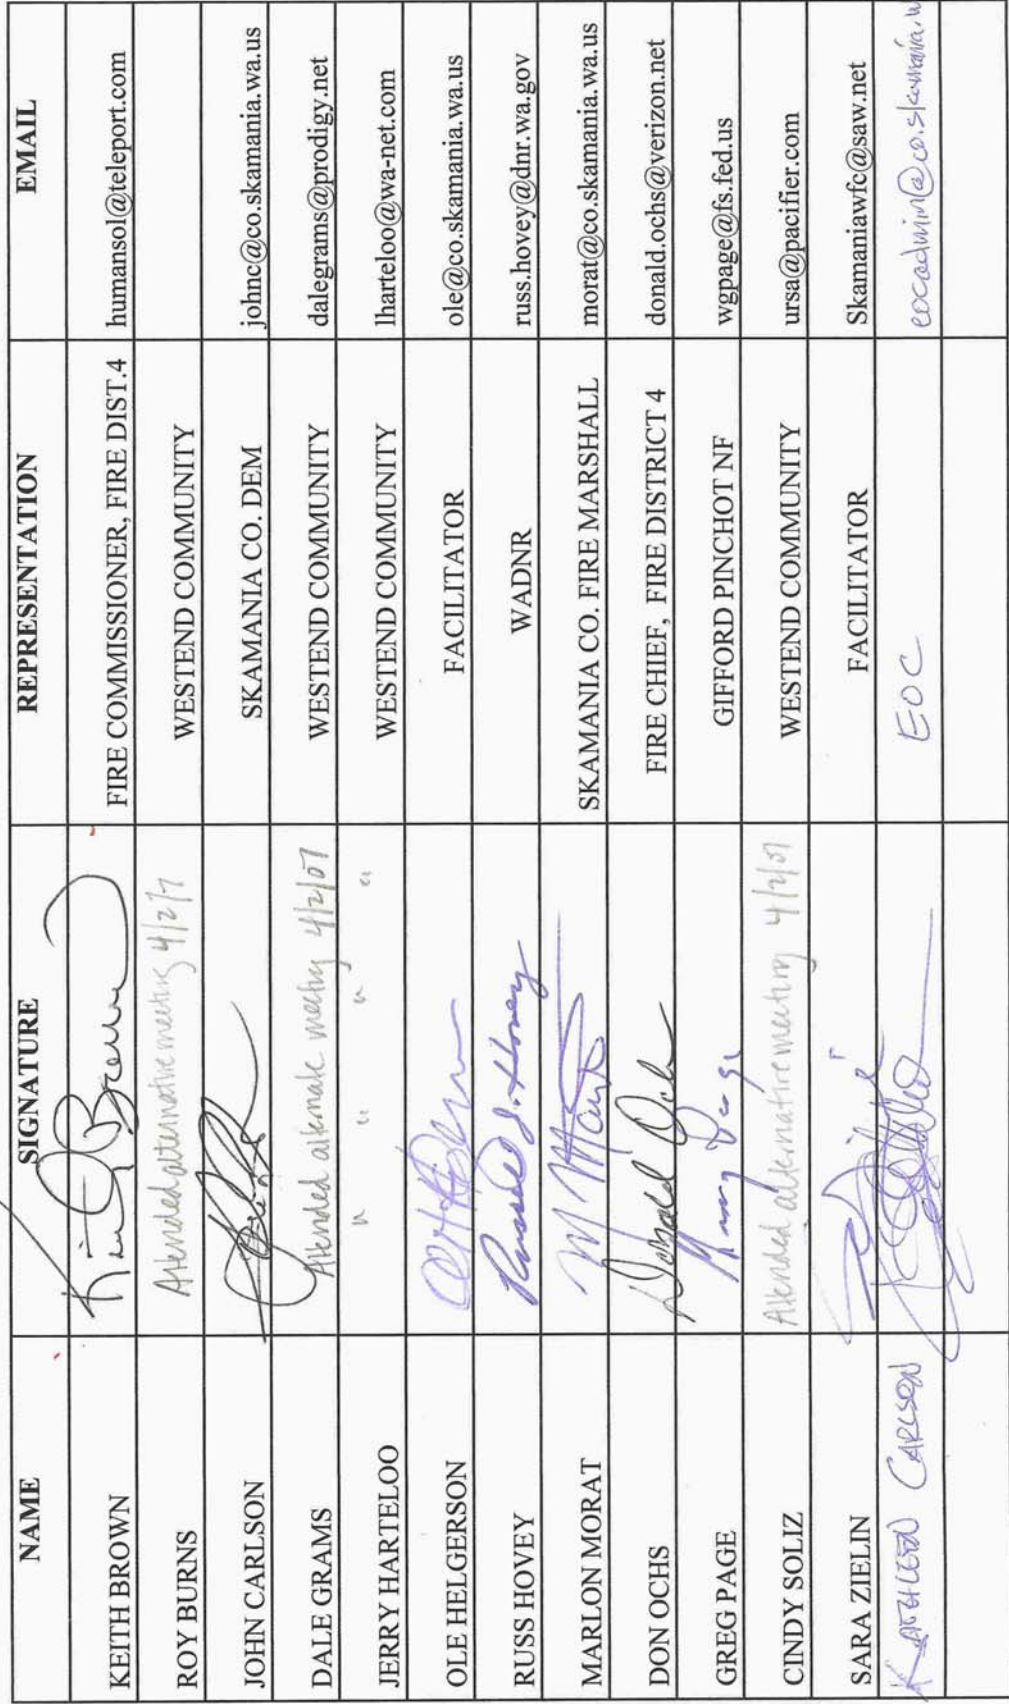 NAME SIGNATURE REPRESENTATION EMAIL
KEITH BROWN Keith Brown FIRE COMMISSIONER, FIRE DIST.4 humansol@teleport.com
ROY BURNS Attended alternative meeting 4/2/7 WESTEND COMMUNITY
JOHN CARLSON SKAMANIA CO. DEM johnc@co.skamania.wa.us
DALE GRAMS Attended alternate meeting 4/2/07 WESTEND COMMUNITY dalegrams@prodigy.net
JERRY HARTELOO " " " " WESTEND COMMUNITY lharteloo@wa-net.com
OLE HELGERSON FACILITATOR ole@co.skamania.wa.us
RUSS HOVEY Russell S. Hovey WADNR russ.hovey@dnr.wa.gov
MARLON MORAT M Morat SKAMANIA CO. FIRE MARSHALL morat@co.skamania.wa.us
DON OCHS Donald Ochs FIRE CHIEF, FIRE DISTRICT 4 donald.ochs@verizon.net
GREG PAGE Greg Page GIFFORD PINCHOT NF wgpage@fs.fed.us
CINDY SOLIZ Attended alternative meeting 4/2/07 WESTEND COMMUNITY ursa@pacifier.com
SARA ZIELIN FACILITATOR Skamaniawfc@saw.net
KATHLEEN CARLSON EOC eocadmin@co.skamania.w